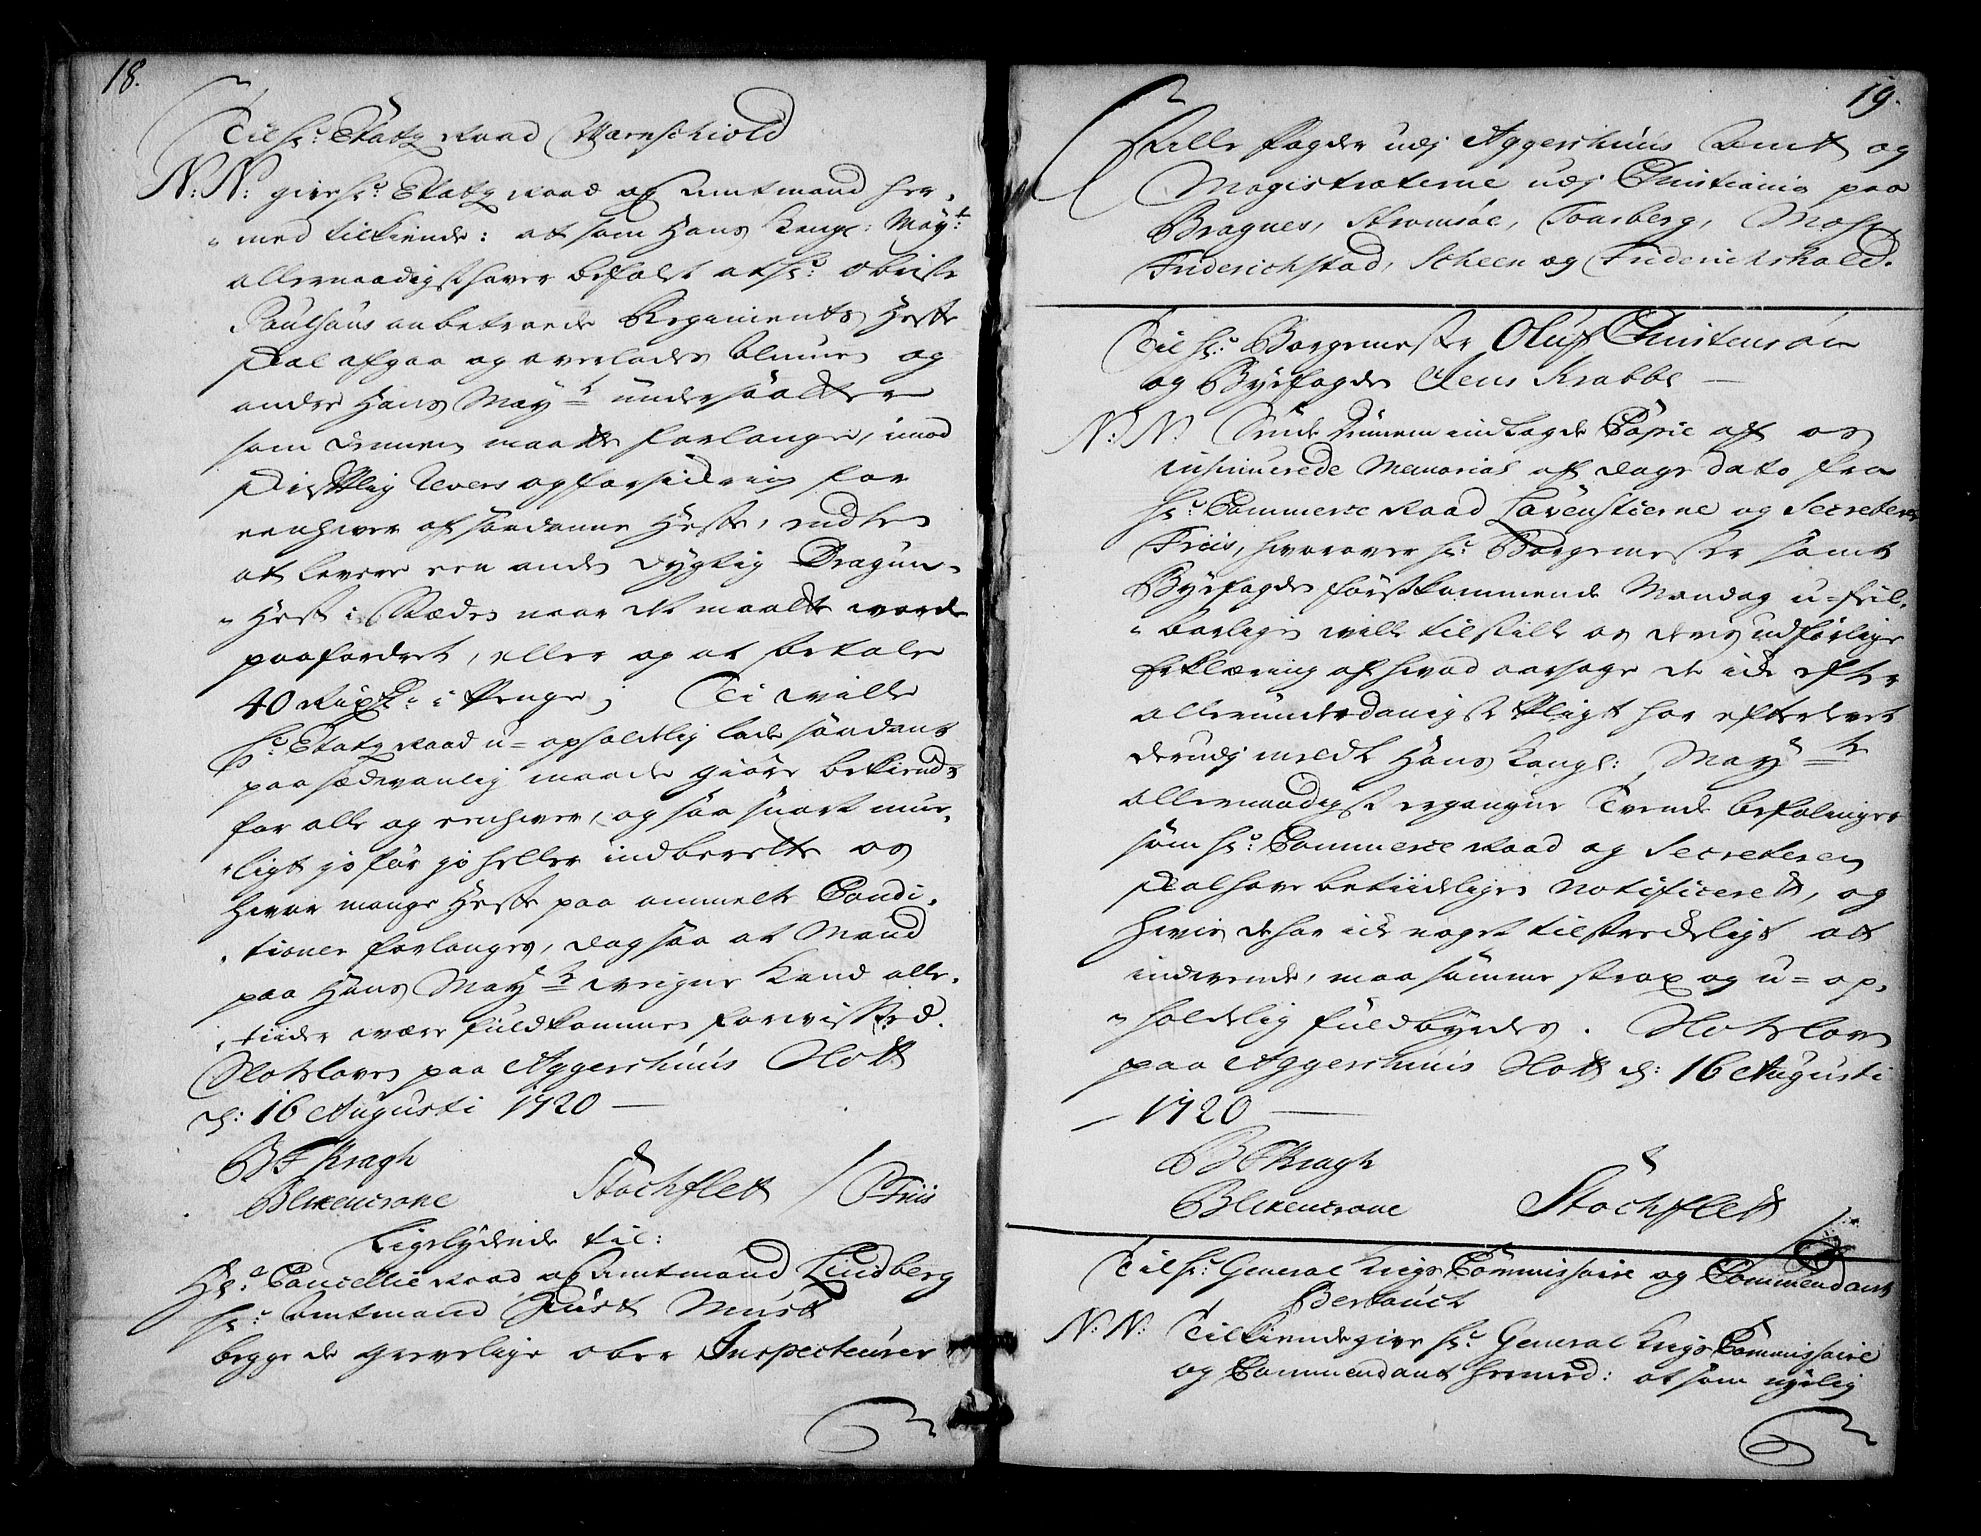 18.
Til Hr: Etatz Raad Warnschiold
N: N: give Hr: Etatz Raad og Amtmand her-
"med tilkiende: at som Hans Kongl: Mayt:
allernaadigst haver befalet at Hr: Obriste
Paulsøns anbetroede Regiments Heste
skal afgaa og overlades Almuen og
andre Hans Mayts undersaatter
som dennem maatte forlange, imod
skriftlig Revers og forsickring for
eenhver af saadanne Heste, endten
at levere een anden dygtig Dragun-
"Hest i Stæden naar det maatte worde
paafordret, eller og at betale
40 Rixdr: i Penge; Ti wille
Hr: Etatz Raad u=opholdelig lade saadant
paa sædvanlig maade giøre bekiendt
for alle og eenhver, og saa snart mue-
"ligt jo før jo heller indberette os
hvor mange Heste paa ommelte Condi-
"tioner forlanges, dog saa at Mand
paa Hans Mayts weigne kand alle-
"tiider være fuldkommen forvissed.
Slotsloven paa Aggershuus Slott
d: 16 Augusti 1720
BF Kragh
Blixencrone Stochflett / CFriis
Ligelydende til:
Hr: Cancellie Raad og Amtmand Lindberg
Hr: Amtmand Just Must
begge de grevelige ober Inspecteurer
19.
Alle fogder udj Aggershuus Amt og
Magistraterne udj Christiania paa
Bragnes, Strømsøe, Tonsberg, Moss,
Friderichstad, Scheen og Friderichshald.
Til Hr: Borgemester Oluf Christensøn
og Byefogden Jens Krabbe
N: N: Sende dennem indlagde Copie af os
insinuerede Memorial af dags dato fra
Hr: Commerce Raad Løvenstierne og Secreterer
Friis, hvorover Hr: Borgemester samt
Byefogden førstkommende Mandag u=feil-
"barligen wille tilstille os deris udførlige
Erklæring af hvad aarsage de icke efter
allerunderdanigste Pligt har efterlevet
derudj meldte Hans Kongl: Mayts
allernaadigst ergangne tvende befalinger
som Hr: Commerce Raad og Secreteren
skal have betiideligen notificeret, og
hvis de har icke noget tilstrækkeligt at
indvende, maa samme strax og u=op-
"holdelig fuldbyrdes. Slotsloven
paa Aggershuus Slott d: 16 Augusti
1720
BF Kragh
Blixencrone Stochflett
Til Hr: General Krigs Commissaire og Commendant
N: N: Tilkiende give Hr: General Krigs Commissaire
og Commendant hermed: at som nylig